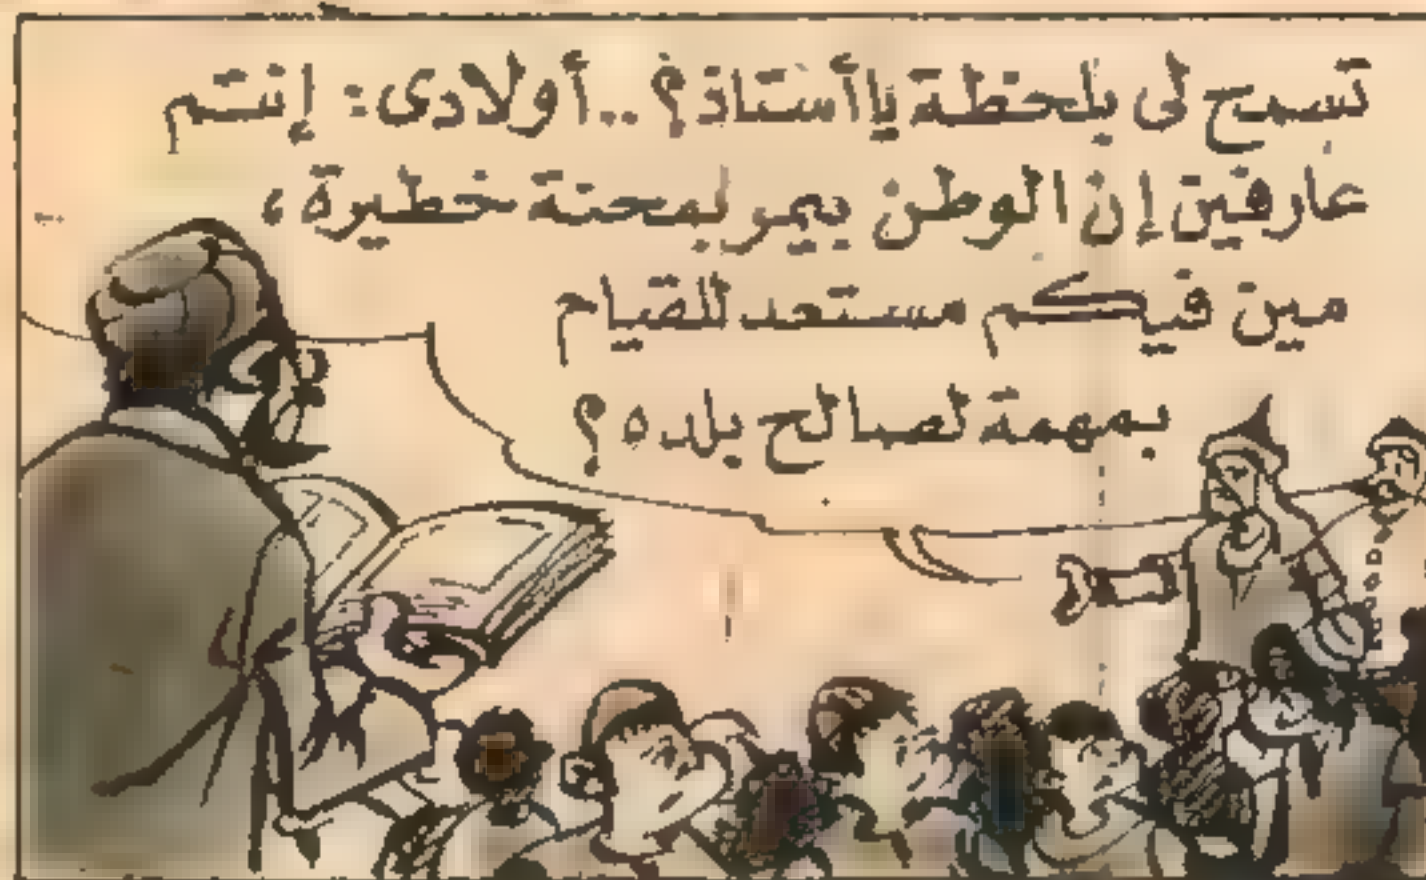 تسمح لى بلحظة ياأستاذ؟ .. أولادى: إنتم
عارفين إن الوطن بيمر لمحنة خطيرة،
مين فيكم مستعد للقيام
بمهمة لصالح بلده؟